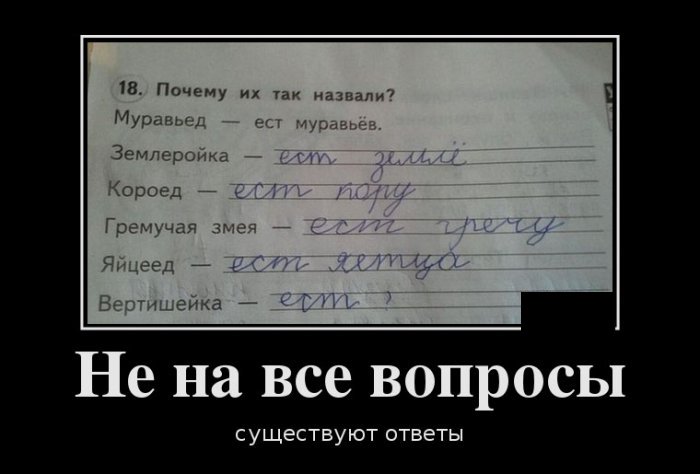 18. Почему их так назвали?
Муравьед — ест муравьёв.
Землеройка — ест землё
Короед — ест кору
Гремучая змея — ест гречу
Яйцеед — ест яетца
Вертишейка — ест ?
Не на все вопросы
существуют ответы